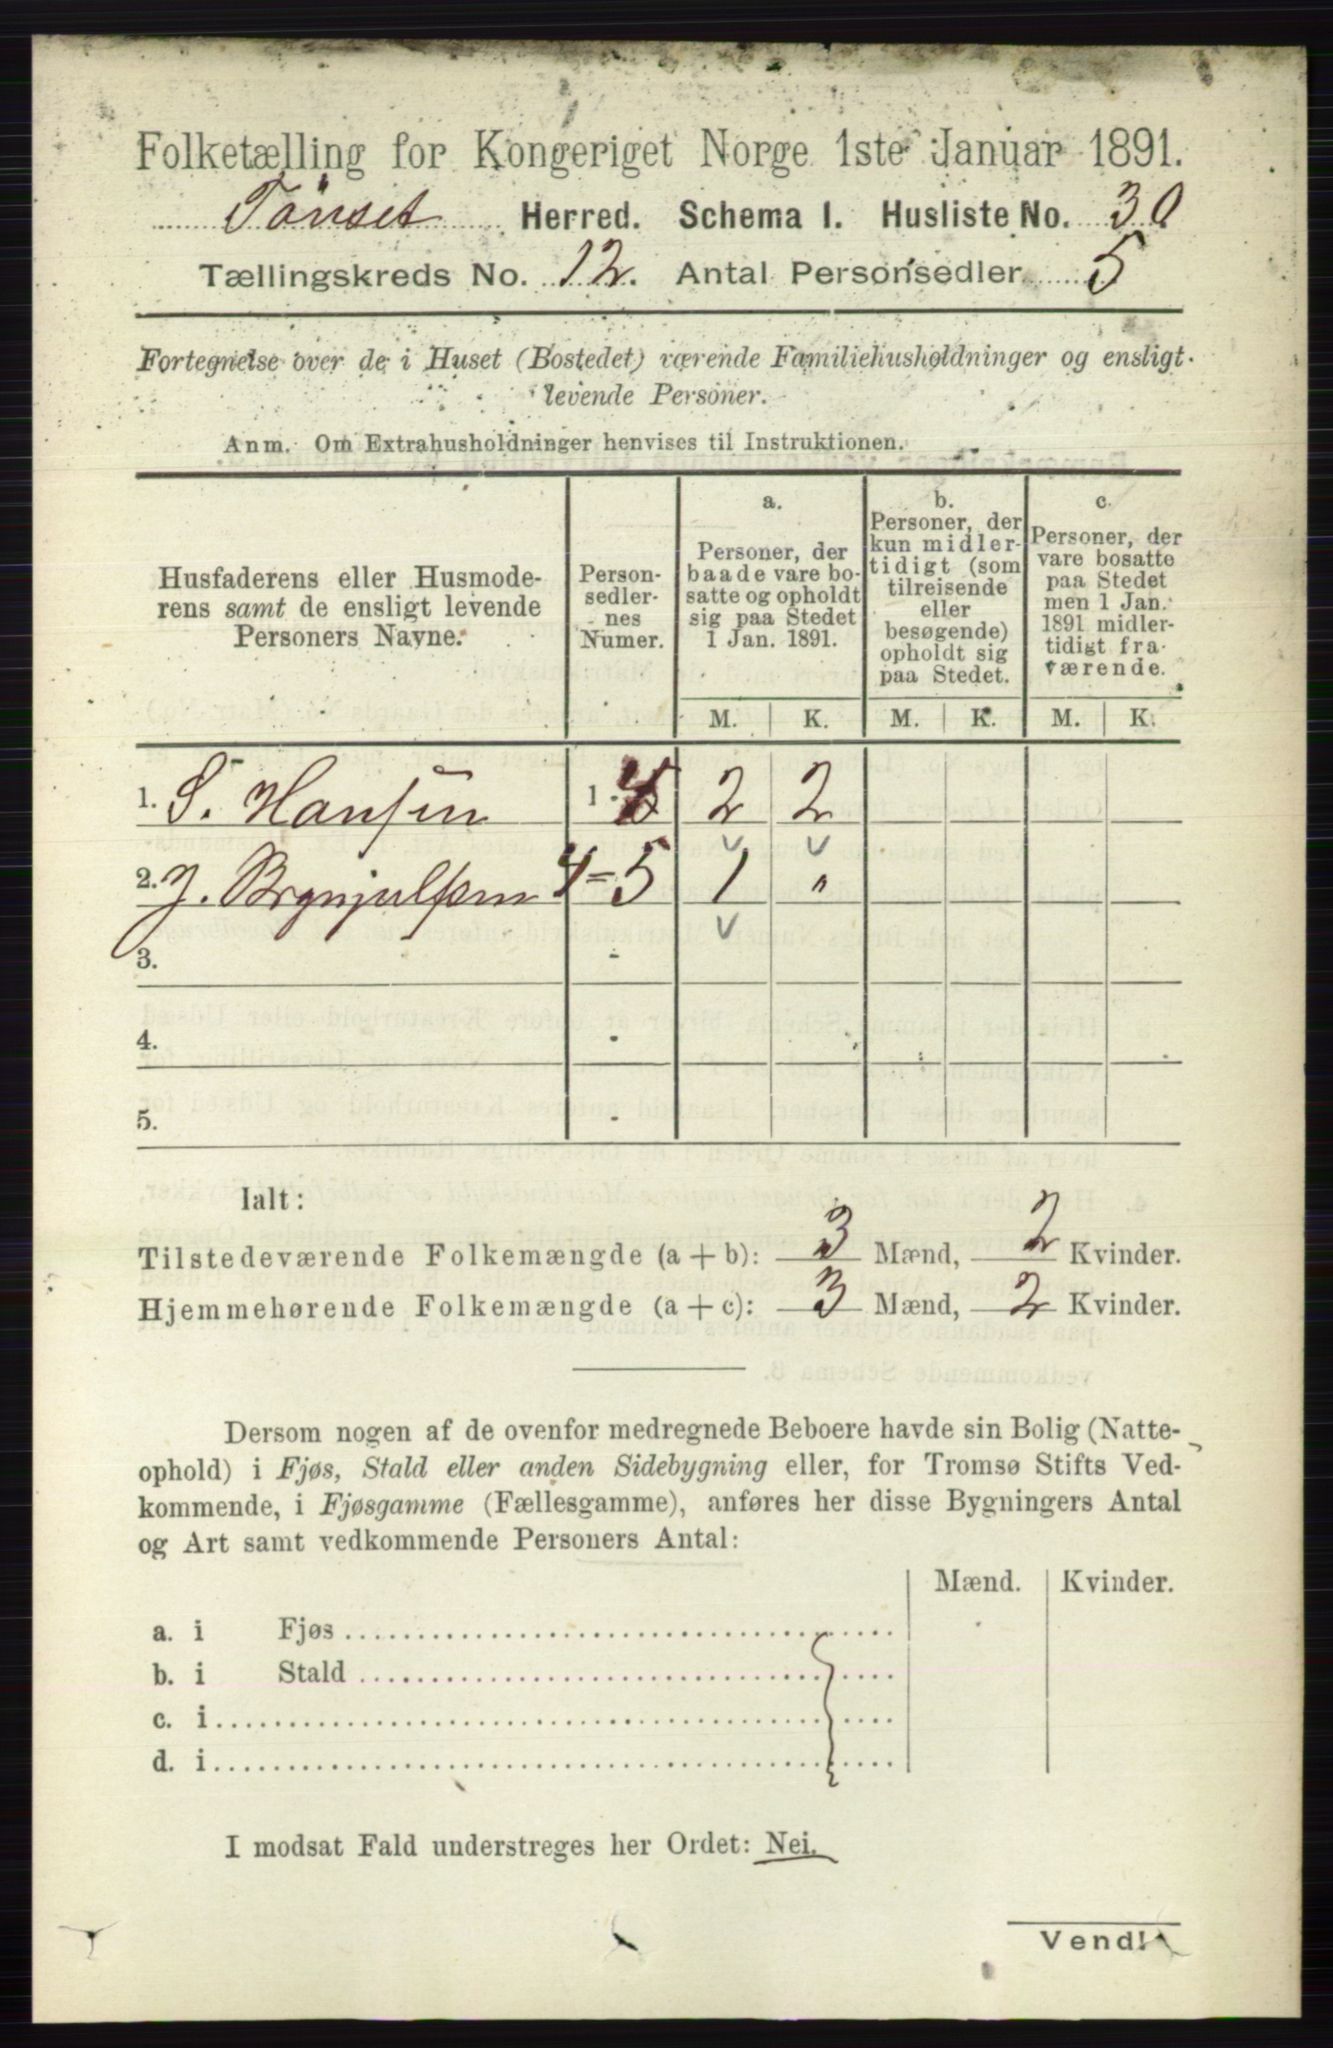 Folketælling for Kongeriget Norge 1ste Januar 1891.
Tönset Herred. Schema I. Husliste No. 30
Tællingskreds No. 12. Antal Personsedler 5
Fortegnelse over de i Huset (Bostedet) værende Familiehusholdninger og ensligt
levende Personer.
Anm. Om Extrahusholdninger henvises til Instruktionen.
Husfaderens eller Husmode-
rens samt de ensligt levende
Personers Navne.
Person-
sedler-
nes
Numer.
a.
Personer, der
baade vare bo-
satte og opholdt
sig paa Stedet
1 Jan. 1891.
b.
Personer, der
kun midler-
tidigt (som
tilreisende
eller
besøgende)
opholdt sig
paa Stedet.
c.
Personer, der
vare bosatte
paa Stedet
men 1 Jan.
1891 midler-
tidigt fra-
værende.
M. K. M. K. M. K.
1. S. Hansen 1 - 2 2
2. J. Brynjulfsen 5 1 "
3. -
4. -
5. -
Ialt:
Tilstedeværende Folkemængde (a + b): 3 Mænd, 2 Kvinder.
Hjemmehørende Folkemængde (a + c): 3 Mænd, 2 Kvinder.
Dersom nogen af de ovenfor medregnede Beboere havde sin Bolig (Natte-
ophold) i Fjøs, Stald eller anden Sidebygning eller, for Tromsø Stifts Ved-
kommende, i Fjøsgamme (Fællesgamme), anføres her disse Bygningers Antal
og Art samt vedkommende Personers Antal:
Mænd. Kvinder.
a. i Fjøs
b. i Stald
c. i
d. i
I modsat Fald understreges her Ordet: Nei.
Vend!